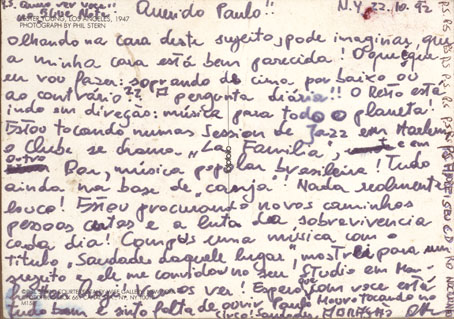 P.S. Quero ver você!!
no Blue Note
LESTER YOUNG, LOS ANGELES, 1947
PHOTOGRAPH BY PHIL STERN
Querido Paulo!!
N.Y, 22.10.92
Olhando na cara deste sujeito, pode imaginar, que
a minha cara está bem parecida! O que que
eu vou fazer: soprando de cima por baixo ou
ao contrário?? A pergunta diária!! O Resto está
indo em direção: música para todo o planeta!
Estou tocando numas Session de Jazz em Harlem
o Clube se chama „La Familia", e em
outro Bar, música popular brasileira! Tudo
ainda na base de „canja"! Nada realmente
louco! Estou procurando novos caminhos
pessoas certas e a luta da sobrevivencia
cada dia! Compôs uma música com o
título „Saudades daquele lugar", mostrei para um
sujeito e ele me convidou no seu Studio em
Vamos ver! Espero que você está
tudo bem e sinto falta de ouvir Paulo Mouro tocando no
Circo! Saudades,